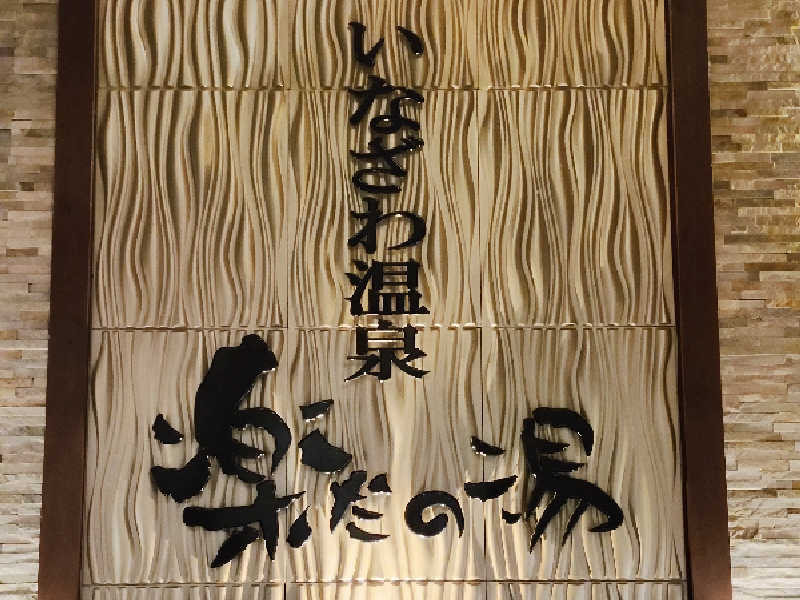 いなざわ温泉
楽だの湯